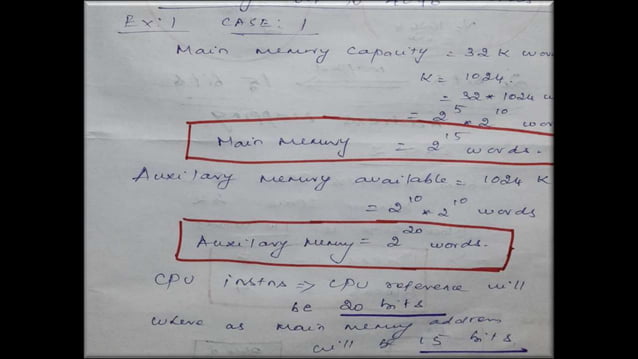 Ex: 1 CASE: 1
Main memory capacity = 32 K wor
K = 1024
= 32 * 1024 w
= 2^5 * 2^10 wor
Main memory = 2^15 words.
Auxilary memory available = 1024 K
= 2^10 * 2^10 words
Auxilary memory = 2^20 words.
CPU instns => CPU reference will
be 20 bits
where as main memory address
will be 15 bits